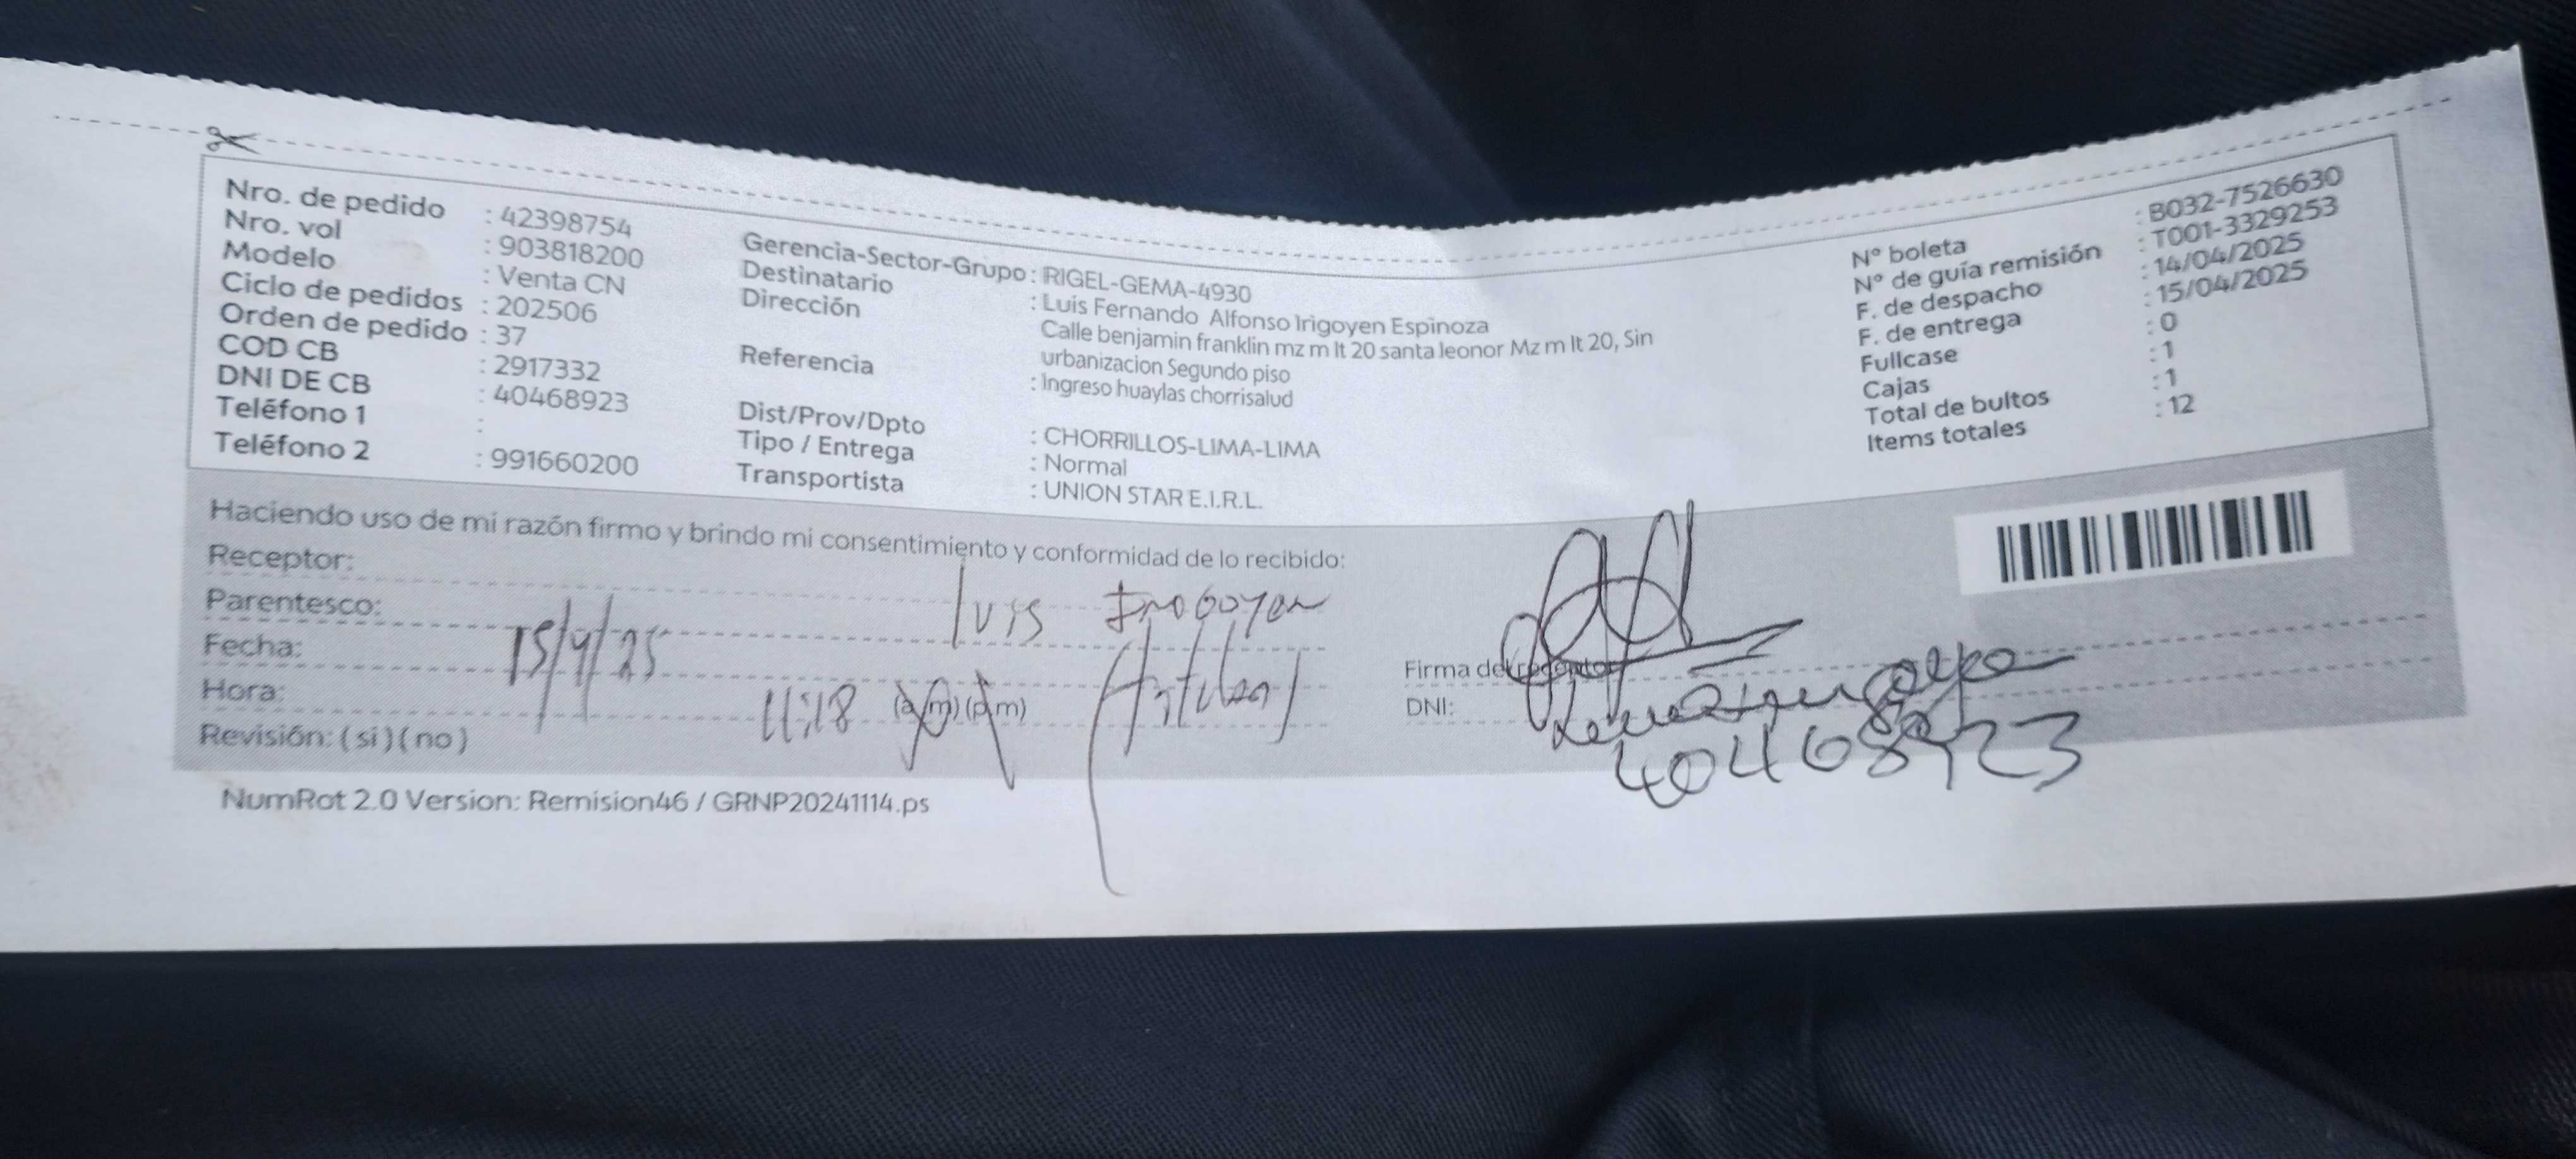 Nro. de pedido : 42398754
Nro. vol : 903818200
Modelo : Venta CN
Ciclo de pedidos : 202506
Orden de pedido : 37
COD CB : 2917332
DNI DE CB : 40468923
Teléfono 1 :
Teléfono 2 : 991660200
Gerencia-Sector-Grupo : RIGEL-GEMA-4930
Destinatario : Luis Fernando Alfonso Irigoyen Espinoza
Dirección Calle benjamin franklin mz m lt 20 santa leonor Mz m lt 20, Sin
urbanizacion Segundo piso
Referencia : Ingreso huaylas chorrisalud
Dist/Prov/Dpto : CHORRILLOS-LIMA-LIMA
Tipo / Entrega : Normal
Transportista : UNION STAR E.I.R.L.
N° boleta : B032-7526630
N° de guía remisión : T001-3329253
F. de despacho : 14/04/2025
F. de entrega : 15/04/2025
Fullcase : 0
Cajas : 1
Total de bultos : 1
Items totales : 12
Haciendo uso de mi razón firmo y brindo mi consentimiento y conformidad de lo recibido:
Receptor: Luis
Parentesco:
Fecha: 15/4/25
Hora: 11:18 (a.m) (p.m)
Revisión: (si) (no)
Firma del receptor
DNI: 40468923
NumRot 2.0 Version: Remision46 / GRNP20241114.ps